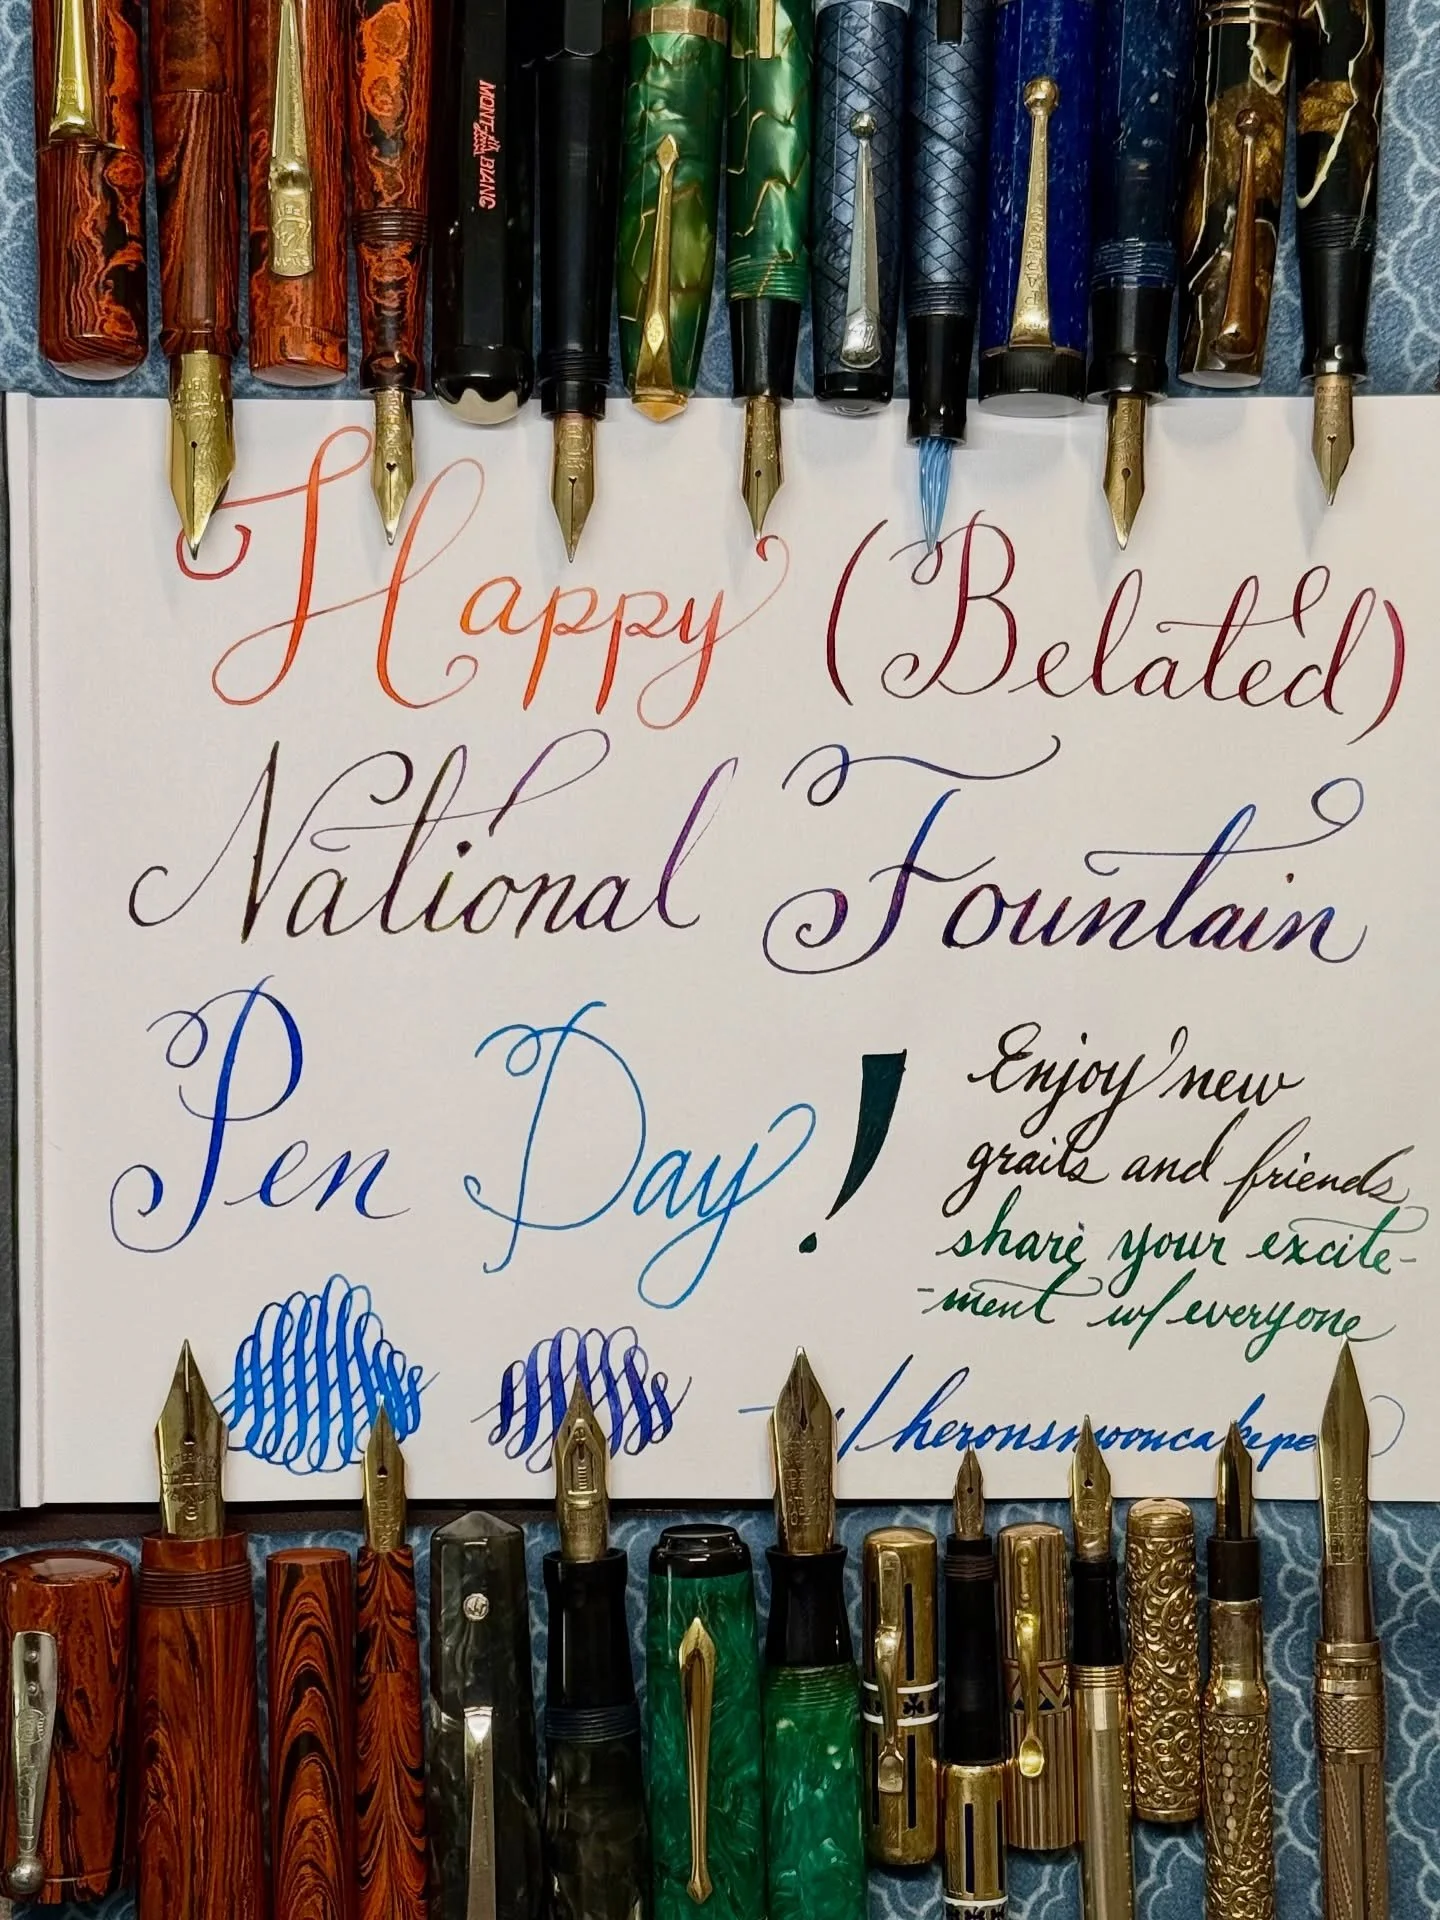 MONT BLANC
Happy (Belated)
National Fountain
Pen Day!
Enjoy new
grails and friends
share your excite-
-ment w/ everyone
/heronsmooncakepe